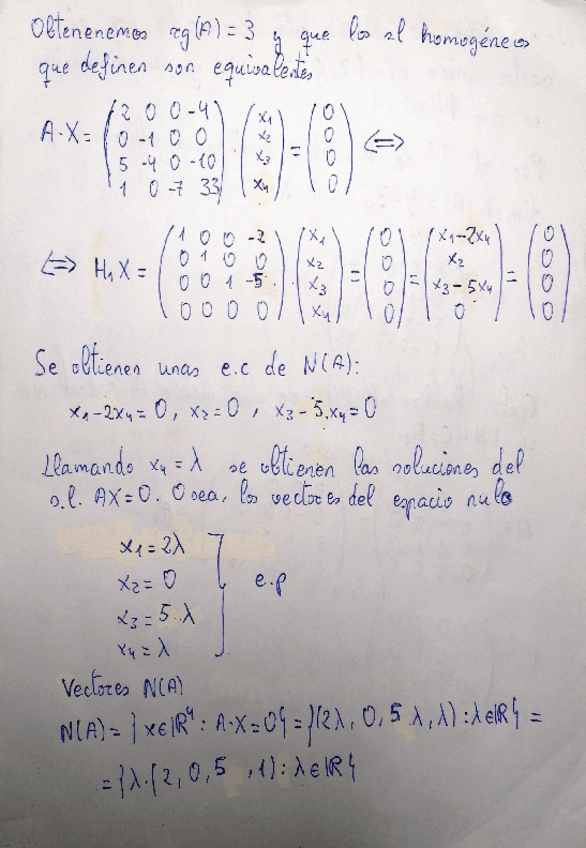 Obtenenemos rg(A) = 3 y que los sl homogéneos
que definen son equivalentes
A·X = (2 0 0 -4; 0 -1 0 0; 5 -4 0 -10; 1 0 -7 33) · (x1; x2; x3; x4) = (0; 0; 0; 0) ⟺
⟺ H1 X = (1 0 0 -2; 0 1 0 0; 0 0 1 -5; 0 0 0 0) · (x1; x2; x3; x4) = (0; 0; 0; 0) = (x1-2x4; x2; x3-5x4; 0) = (0; 0; 0; 0)
Se obtienen unas e.c de N(A):
x1-2x4 = 0, x2 = 0, x3-5.x4 = 0
Llamando x4 = λ se obtienen las soluciones del
s.l. AX = 0. O sea, los vectores del espacio nulo
x1 = 2λ
x2 = 0 e.p
x3 = 5.λ
x4 = λ
Vectores N(A)
N(A) = {x∈ℝ⁴: A·X = 0} = {(2λ, 0, 5 λ, λ): λ∈ℝ} =
= {λ·(2, 0, 5 , 1): λ∈ℝ}